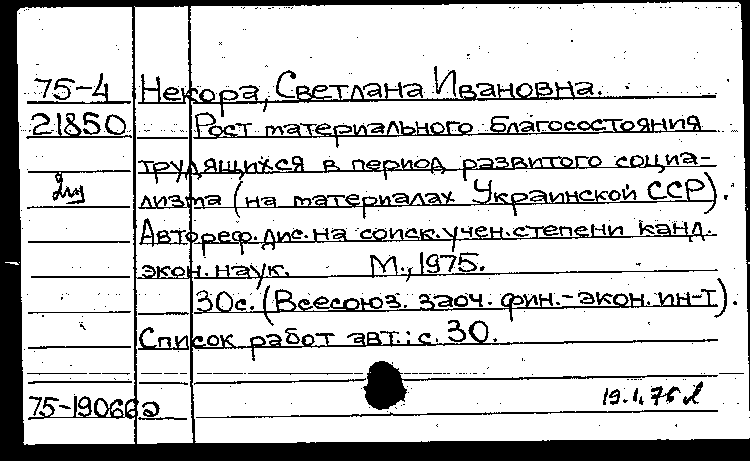 75-4 Некора, Светлана Ивановна.
21850 Рост материального благосостояния
трудящихся в период развитого социа-
лизма (на материалах Украинской ССР).
Автореф. дис. на соиск. учен. степени канд.
экон. наук. М., 1975.
30с. (Всесоюз. заоч. фин.-экон. ин-т).
Список работ авт.: с. 30.
75-19066а
19.1.76